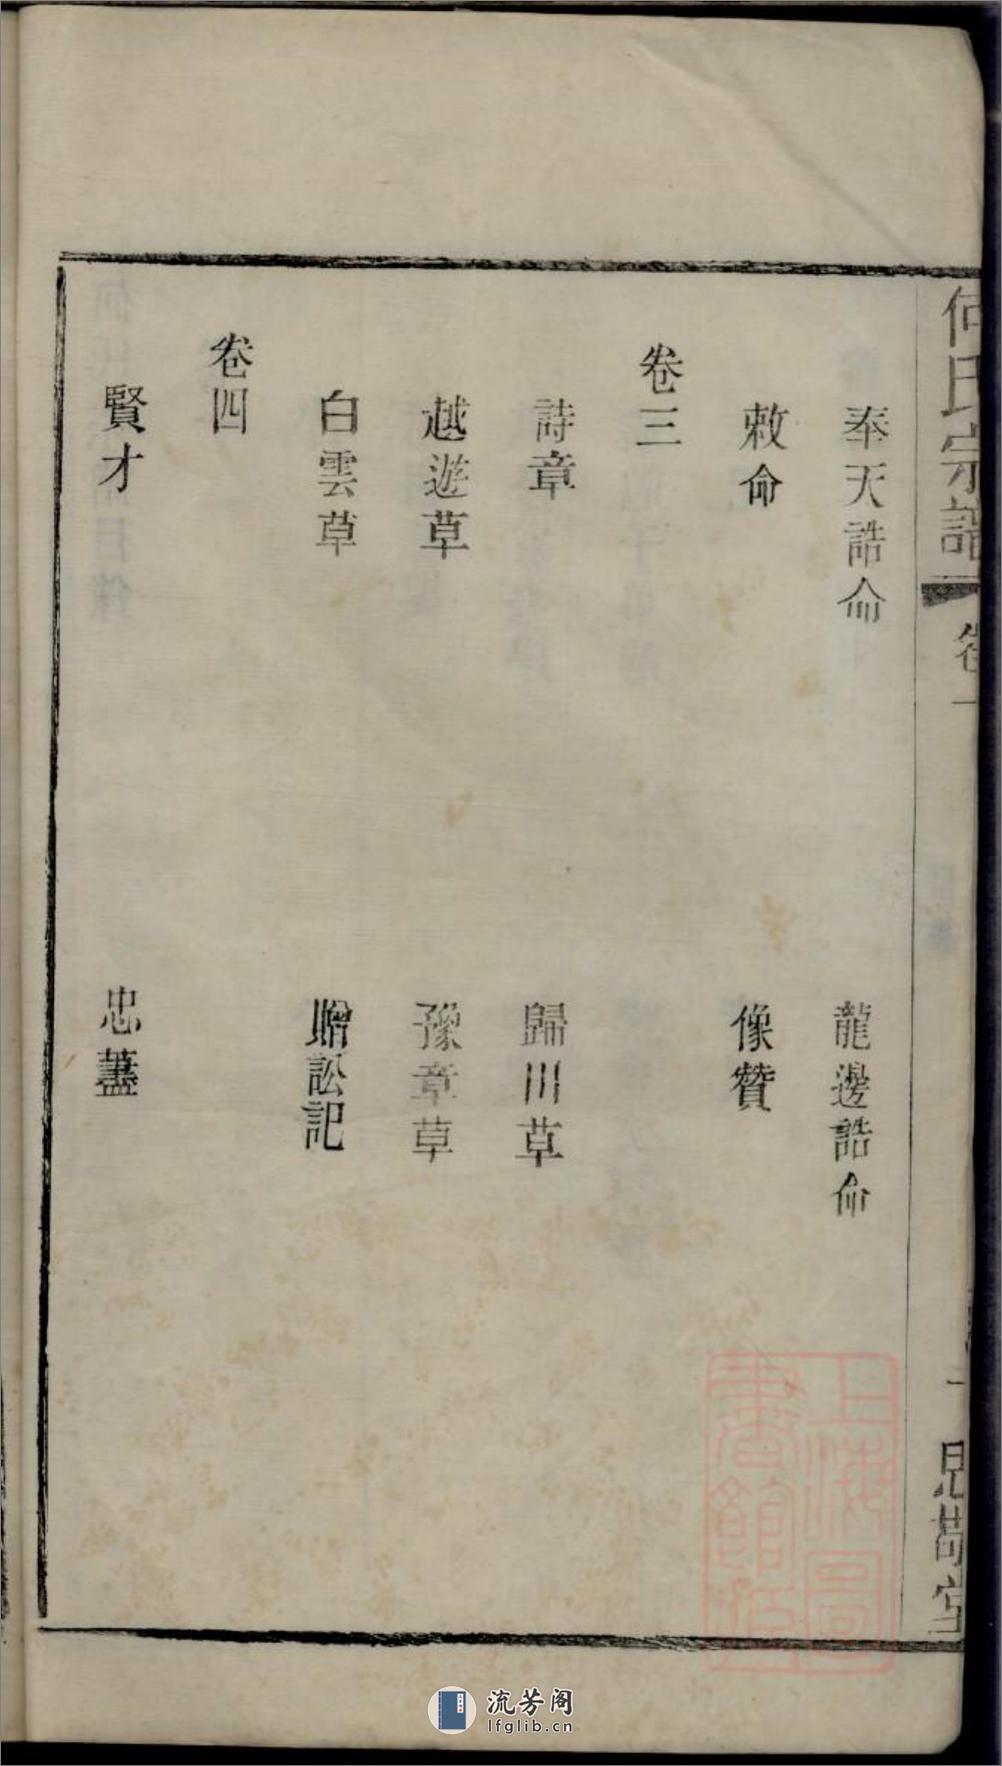 何氏宗譜 卷一 一 思敬堂
奉天誥命 龍邊誥命
敕命 像贊
卷三
詩章 歸川草
越遊草 豫章草
白雲草 贈訟記
卷四
賢才 忠藎
上海圖書館藏
流芳阁
lfglib.cn